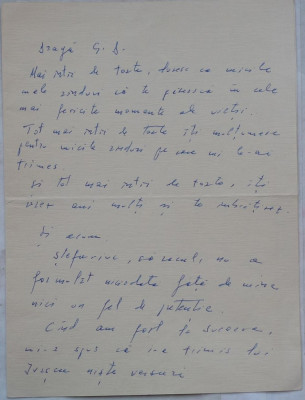 Dragă G. D.
Mai întîi de toate, doresc ca micile
mele rînduri să te găsească în cele
mai fericite momente ale vieții.
Tot mai întîi de toate îți mulțumesc
pentru micile rînduri pe care mi le-ai
trimes.
Și tot mai întîi de toate, îți
urez ani mulți și te îmbrățișez.
Și acum
săracul, nu a
formulat niciodată față de mine
nici un fel de
Cînd am fost la Suceava,
mi-a spus că i-a trimis lui
niște versuri